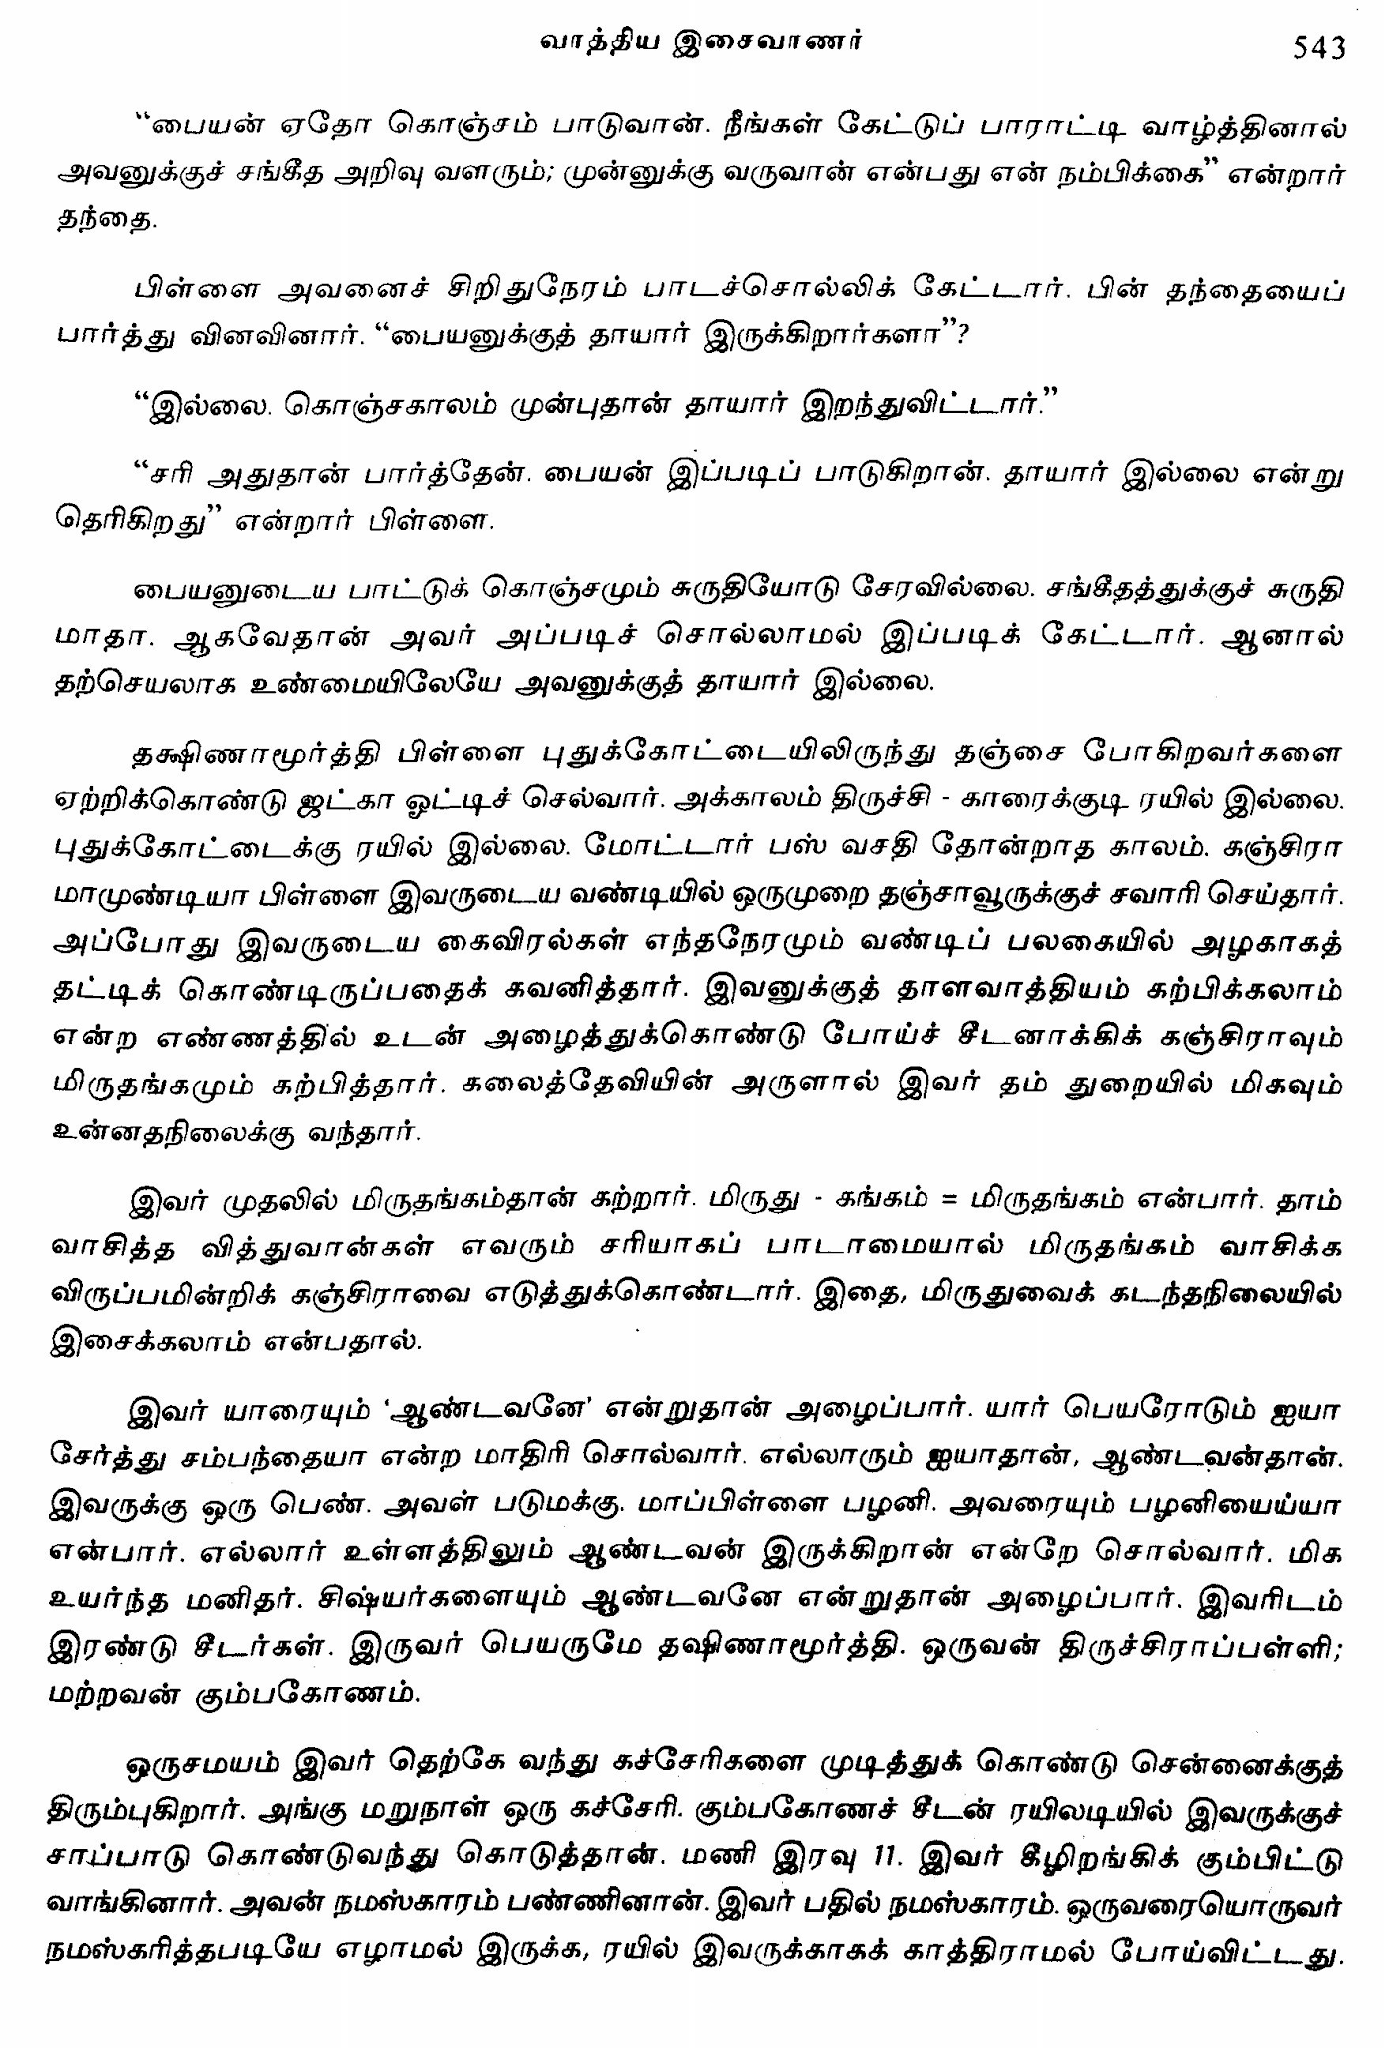 வாத்திய இசைவாணர்
543
“பையன் ஏதோ கொஞ்சம் பாடுவான். நீங்கள் கேட்டுப் பாராட்டி வாழ்த்தினால்
அவனுக்குச் சங்கீத அறிவு வளரும்; முன்னுக்கு வருவான் என்பது என் நம்பிக்கை” என்றார்
தந்தை.
பிள்ளை அவனைச் சிறிதுநேரம் பாடச்சொல்லிக் கேட்டார். பின் தந்தையைப்
பார்த்து வினவினார். “பையனுக்குத் தாயார் இருக்கிறார்களா”?
“இல்லை. கொஞ்சகாலம் முன்புதான் தாயார் இறந்துவிட்டார்.”
“சரி அதுதான் பார்த்தேன். பையன் இப்படிப் பாடுகிறான். தாயார் இல்லை என்று
தெரிகிறது” என்றார் பிள்ளை.
பையனுடைய பாட்டுக் கொஞ்சமும் சுருதியோடு சேரவில்லை. சங்கீதத்துக்குச் சுருதி
மாதா. ஆகவேதான் அவர் அப்படிச் சொல்லாமல் இப்படிக் கேட்டார். ஆனால்
தற்செயலாக உண்மையிலேயே அவனுக்குத் தாயார் இல்லை.
தக்ஷிணாமூர்த்தி பிள்ளை புதுக்கோட்டையிலிருந்து தஞ்சை போகிறவர்களை
ஏற்றிக்கொண்டு ஜட்கா ஓட்டிச் செல்வார். அக்காலம் திருச்சி - காரைக்குடி ரயில் இல்லை.
புதுக்கோட்டைக்கு ரயில் இல்லை. மோட்டார் பஸ் வசதி தோன்றாத காலம். கஞ்சிரா
மாமுண்டியா பிள்ளை இவருடைய வண்டியில் ஒருமுறை தஞ்சாவூருக்குச் சவாரி செய்தார்.
அப்போது இவருடைய கைவிரல்கள் எந்தநேரமும் வண்டிப் பலகையில் அழகாகத்
தட்டிக் கொண்டிருப்பதைக் கவனித்தார். இவனுக்குத் தாளவாத்தியம் கற்பிக்கலாம்
என்ற எண்ணத்தில் உடன் அழைத்துக்கொண்டு போய்ச் சீடனாக்கிக் கஞ்சிராவும்
மிருதங்கமும் கற்பித்தார். கலைத்தேவியின் அருளால் இவர் தம் துறையில் மிகவும்
உன்னதநிலைக்கு வந்தார்.
இவர் முதலில் மிருதங்கம்தான் கற்றார். மிருது - கங்கம் = மிருதங்கம் என்பார். தாம்
வாசித்த வித்துவான்கள் எவரும் சரியாகப் பாடாமையால் மிருதங்கம் வாசிக்க
விருப்பமின்றிக் கஞ்சிராவை எடுத்துக்கொண்டார். இதை, மிருதுவைக் கடந்தநிலையில்
இசைக்கலாம் என்பதால்.
இவர் யாரையும் ‘ஆண்டவனே’ என்றுதான் அழைப்பார். யார் பெயரோடும் ஐயா
சேர்த்து சம்பந்தையா என்ற மாதிரி சொல்வார். எல்லாரும் ஐயாதான், ஆண்டவன்தான்.
இவருக்கு ஒரு பெண். அவள் படுமக்கு. மாப்பிள்ளை பழனி. அவரையும் பழனியைய்யா
என்பார். எல்லார் உள்ளத்திலும் ஆண்டவன் இருக்கிறான் என்றே சொல்வார். மிக
உயர்ந்த மனிதர். சிஷ்யர்களையும் ஆண்டவனே என்றுதான் அழைப்பார். இவரிடம்
இரண்டு சீடர்கள். இருவர் பெயருமே தஷிணாமூர்த்தி. ஒருவன் திருச்சிராப்பள்ளி;
மற்றவன் கும்பகோணம்.
ஒருசமயம் இவர் தெற்கே வந்து கச்சேரிகளை முடித்துக் கொண்டு சென்னைக்குத்
திரும்புகிறார். அங்கு மறுநாள் ஒரு கச்சேரி. கும்பகோணச் சீடன் ரயிலடியில் இவருக்குச்
சாப்பாடு கொண்டுவந்து கொடுத்தான். மணி இரவு 11. இவர் கீழிறங்கிக் கும்பிட்டு
வாங்கினார். அவன் நமஸ்காரம் பண்ணினான். இவர் பதில் நமஸ்காரம். ஒருவரையொருவர்
நமஸ்கரித்தபடியே எழாமல் இருக்க, ரயில் இவருக்காகக் காத்திராமல் போய்விட்டது.